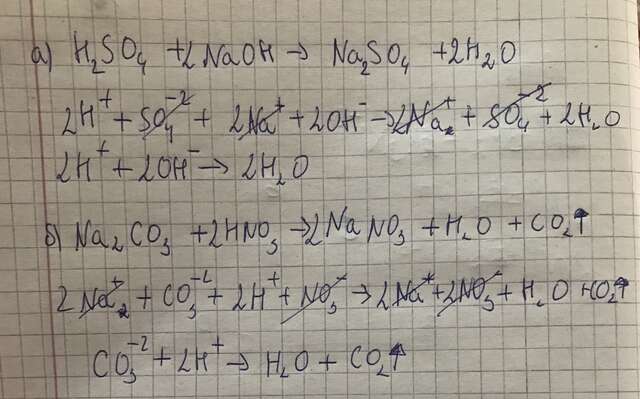 а) H₂SO₄ + 2NaOH → Na₂SO₄ + 2H₂O
2H⁺ + SO₄⁻² + 2Na⁺ + 2OH⁻ → 2Na₂⁺ + SO₄⁻² + 2H₂O
2H⁺ + 2OH⁻ → 2H₂O
б) Na₂CO₃ + 2HNO₃ → 2NaNO₃ + H₂O + CO₂↑
2Na₂⁺ + CO₃⁻² + 2H⁺ + NO₃⁻ → 2Na⁺ + 2NO₃⁻ + H₂O + CO₂↑
CO₃⁻² + 2H⁺ → H₂O + CO₂↑